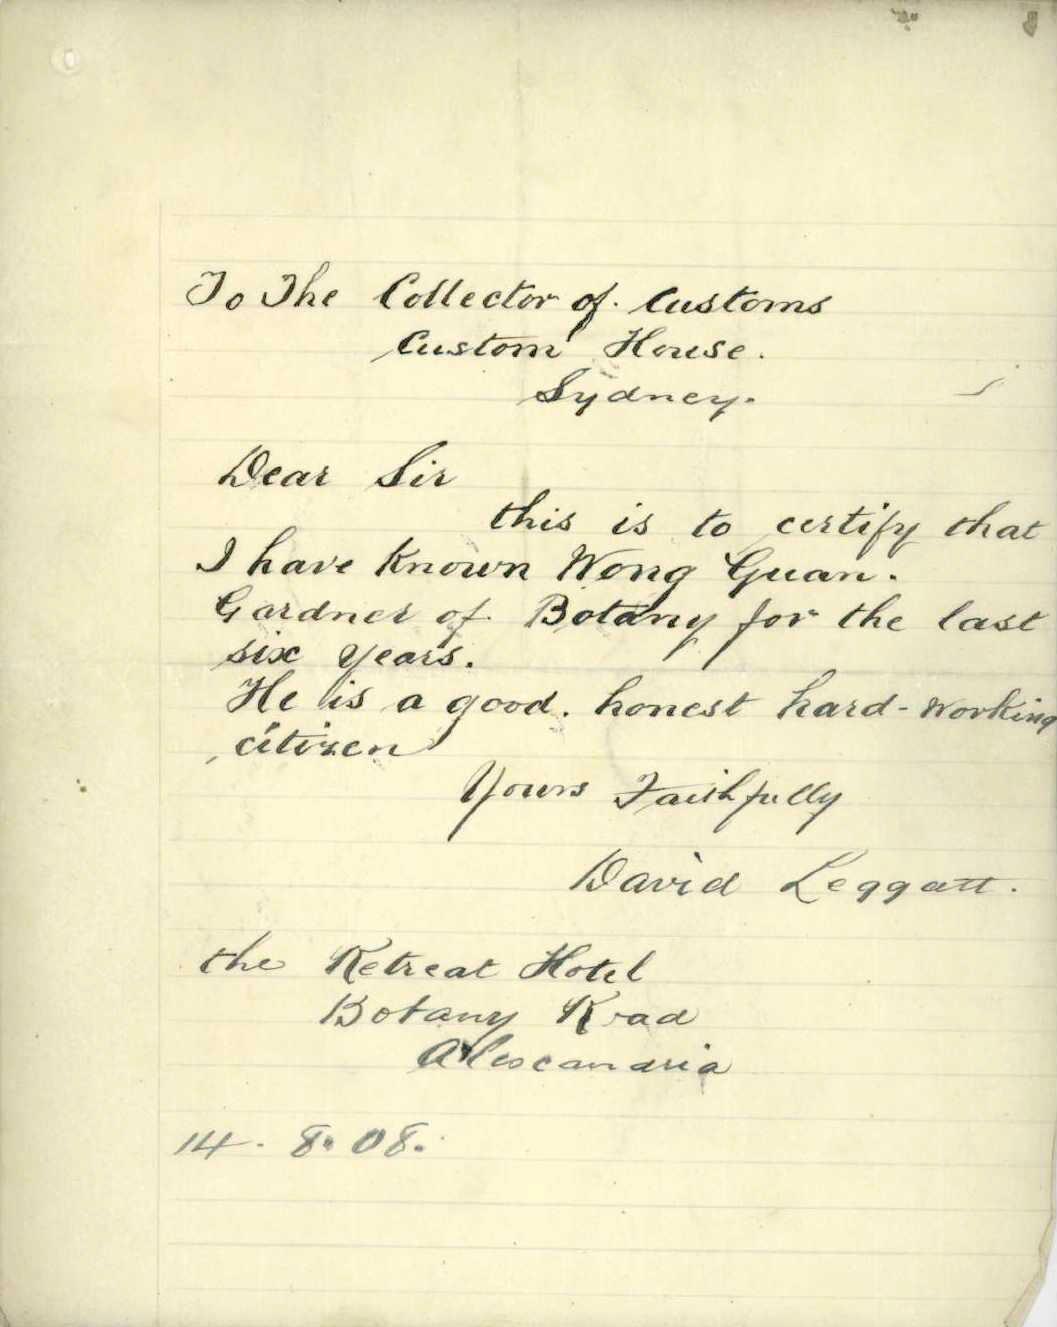 To The Collector of. Customs
Custom House.
Sydney.
Dear Sir
this is to certify that
I have known Wong Guan.
Gardner of Botany for the last
six years.
He is a good. honest hard-working
citizen
Yours Faithfully
David Leggatt.
the Retreat Hotel
Botany Road
Alexcandria
14. 8. 08.